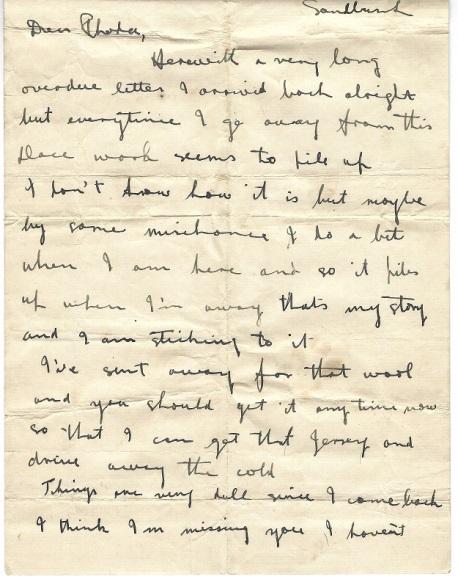 Sandbank
Dear Rhoda,
Herewith a very long
overdue letter I arrived back alright
but everytime I go away from this
place work seems to pile up
I don't know how it is but maybe
by some mischance I do a bit
when I am here and so it piles
up when I'm away thats my story
and I am sticking to it
I've sent away for that wool
and you should get it anytime now
so that I can get that Jersey and
drive away the cold
Things are very dull since I came back
I think I'm missing you I havent